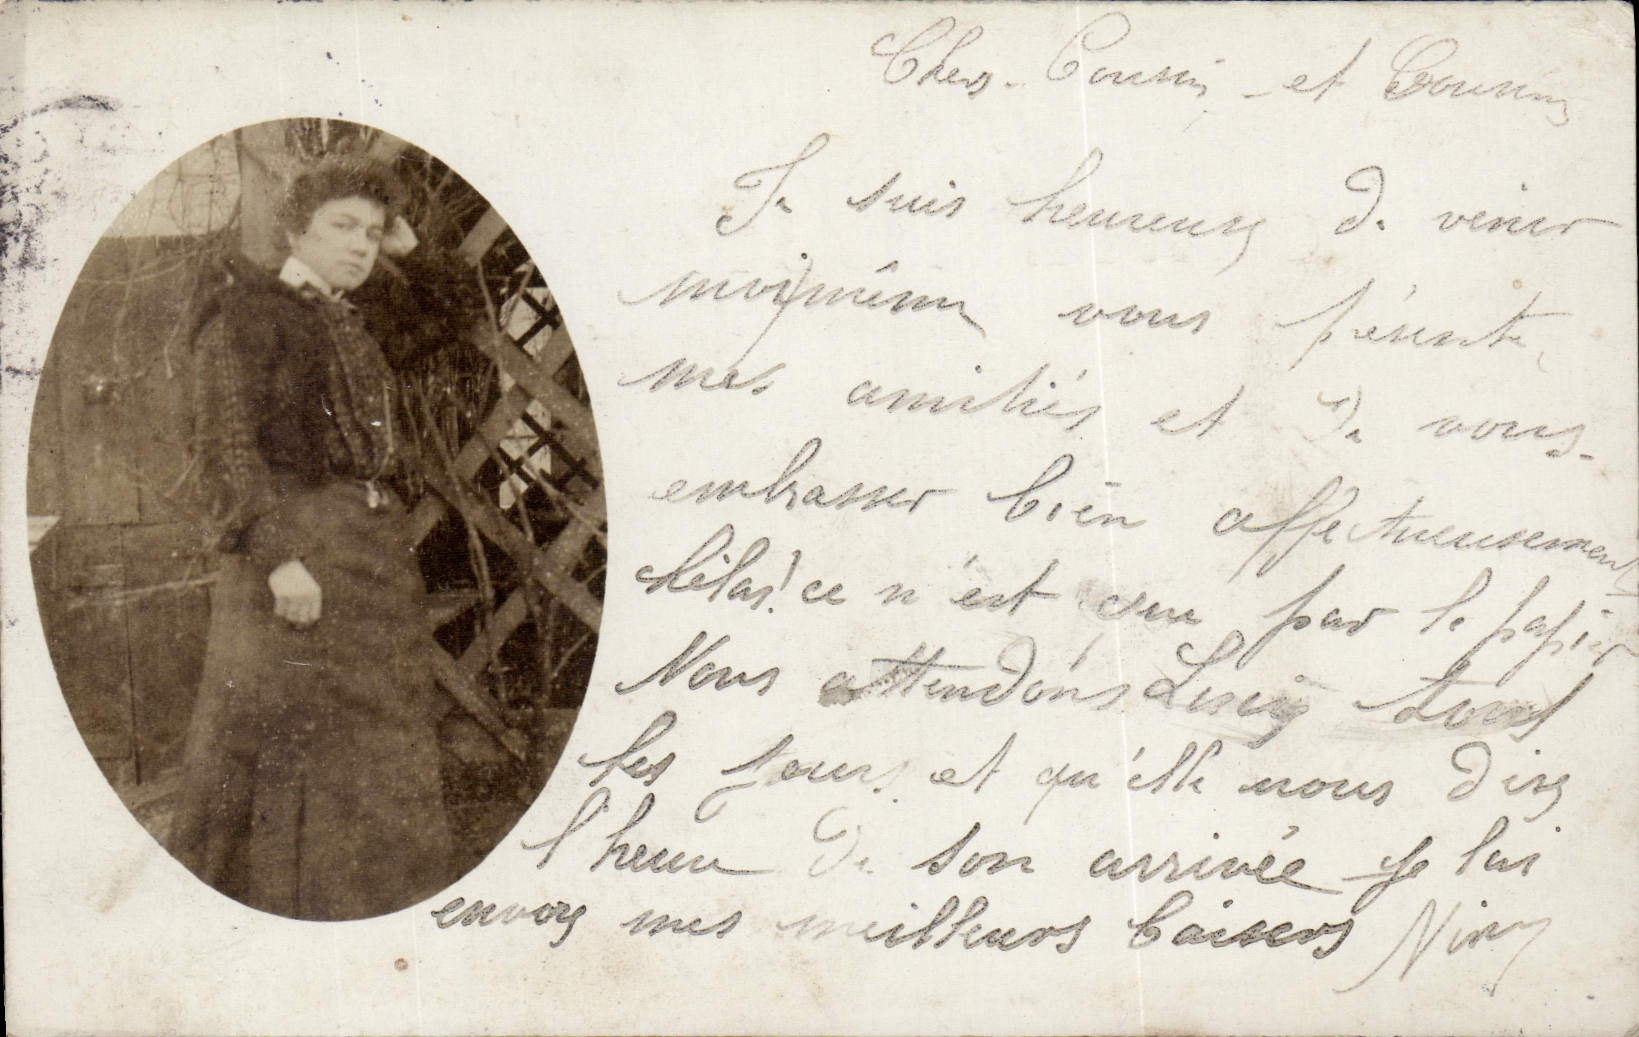 Chers Cousin et Cousine
Je suis heureuse de venir
moi même vous présenter
mes amitiés et de vous
embrasser bien affectueusement
hélas! ce n'est que par le papier
Nous attendons tous
les jours et qu'elle nous dise
l'heure de son arrivée je lui
envoie mes meilleurs baisers